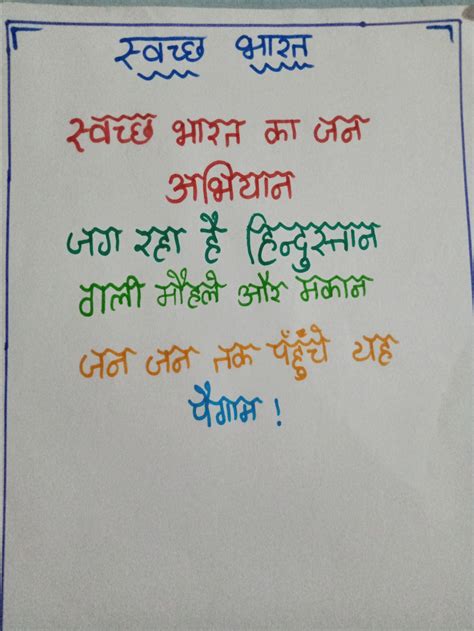 स्वच्छ भारत
स्वच्छ भारत का जन
अभियान
जग रहा है हिन्दुस्तान
गली मौहले और मकान
जन जन तक पहुँचे यह
पैगाम !